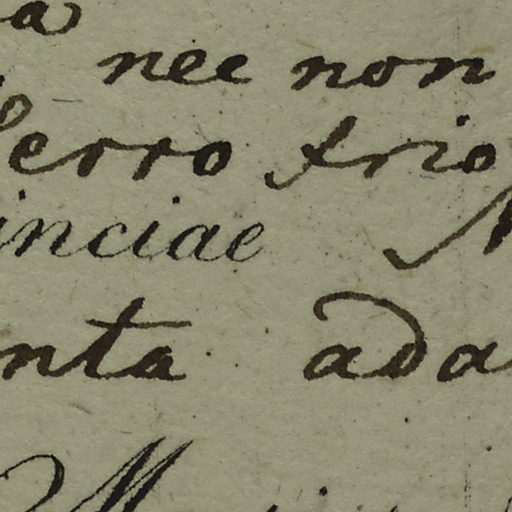 a
nec non
erro trio
inciae N
nta ada
M